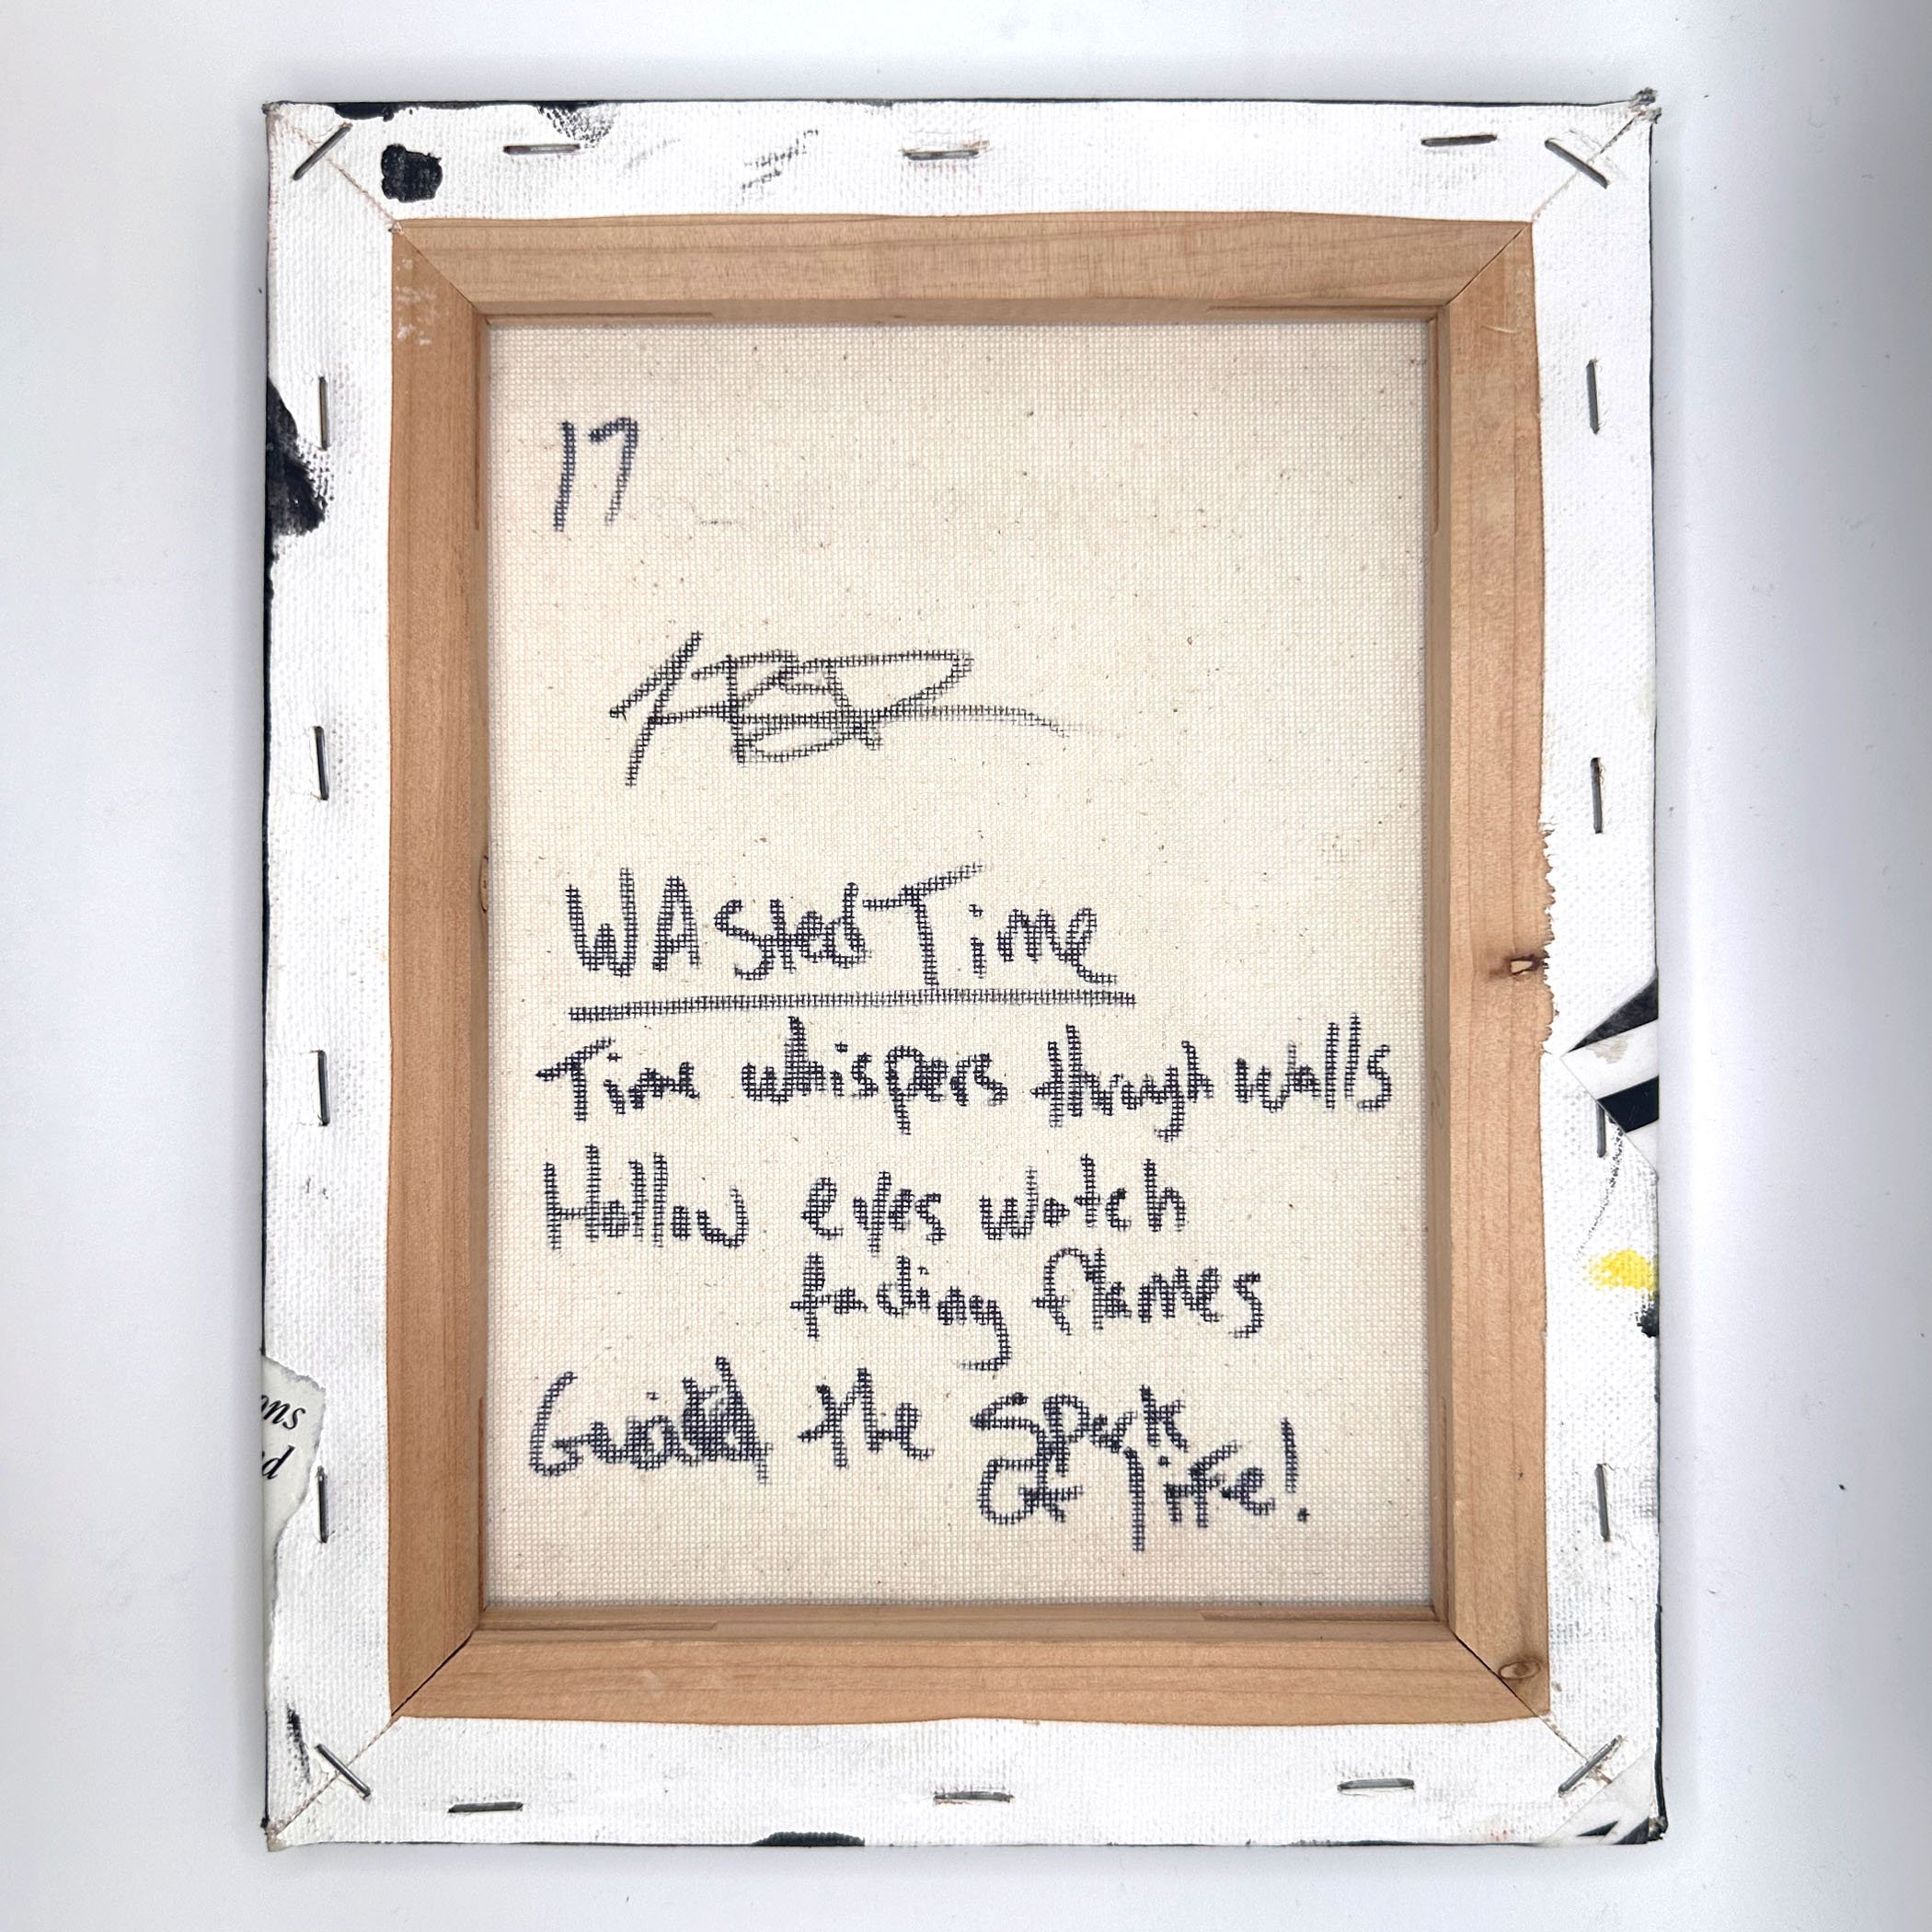 17
WAsted Time
Time whispers through walls
Hollow eyes watch
fading flames
the Spark
of life!
ons
d